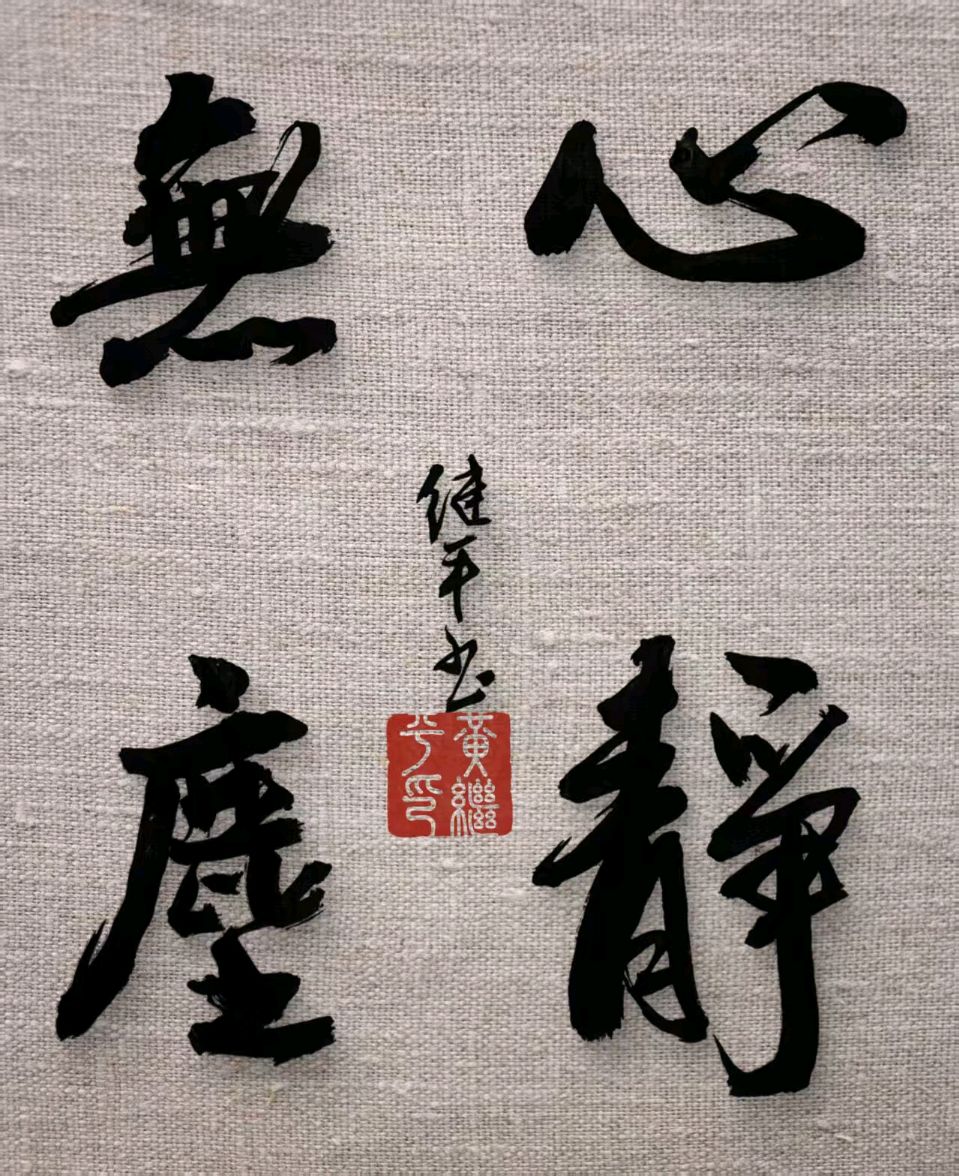 心靜
無塵
继平书
黃繼平印